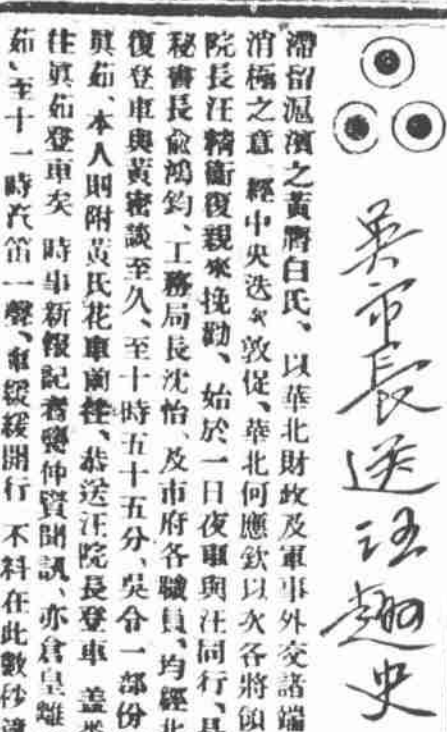 吴市長送汪趣史
滯留滬濱之黃膺白氏、以華北財政及軍事外交諸端
消極之意 經中央迭次敦促、華北何應欽以次各將領
院長汪精衛復親來挽勸、始於一日夜車與汪同行、
秘書長俞鴻鈞、工務局長沈怡、及市府各職員、均經北
復登車與黃密談至久、至十時五十五分、吳令一部份
眞茹、本人則附黃氏花車前往、恭送汪院長登車 蓋
往眞茹登車矣 時事新報記者 仲賢聞訊、亦倉皇離
茹、至十一時汽笛一聲、車緩緩開行 不料在此數秒